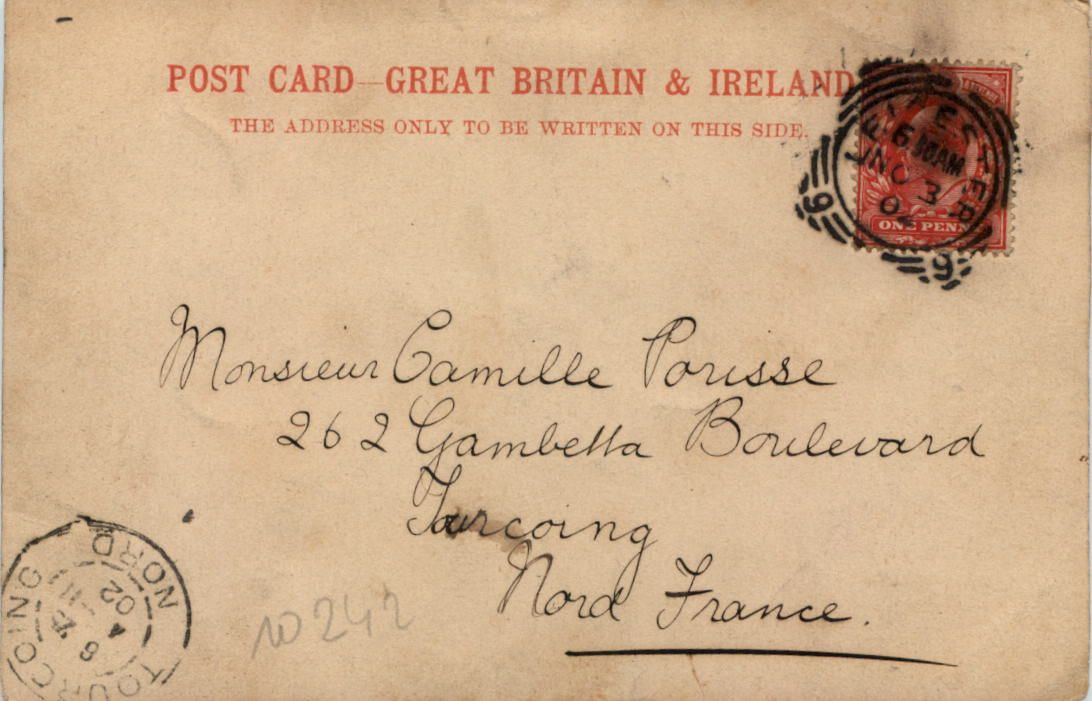 POST CARD—GREAT BRITAIN & IRELAND
THE ADDRESS ONLY TO BE WRITTEN ON THIS SIDE.
JN 3
02
9
9
ONE PENNY
Monsieur Camille Parisse
262 Gambetta Boulevard
Turcoing
Nord France.
TOURCOING
NORD
02
10242